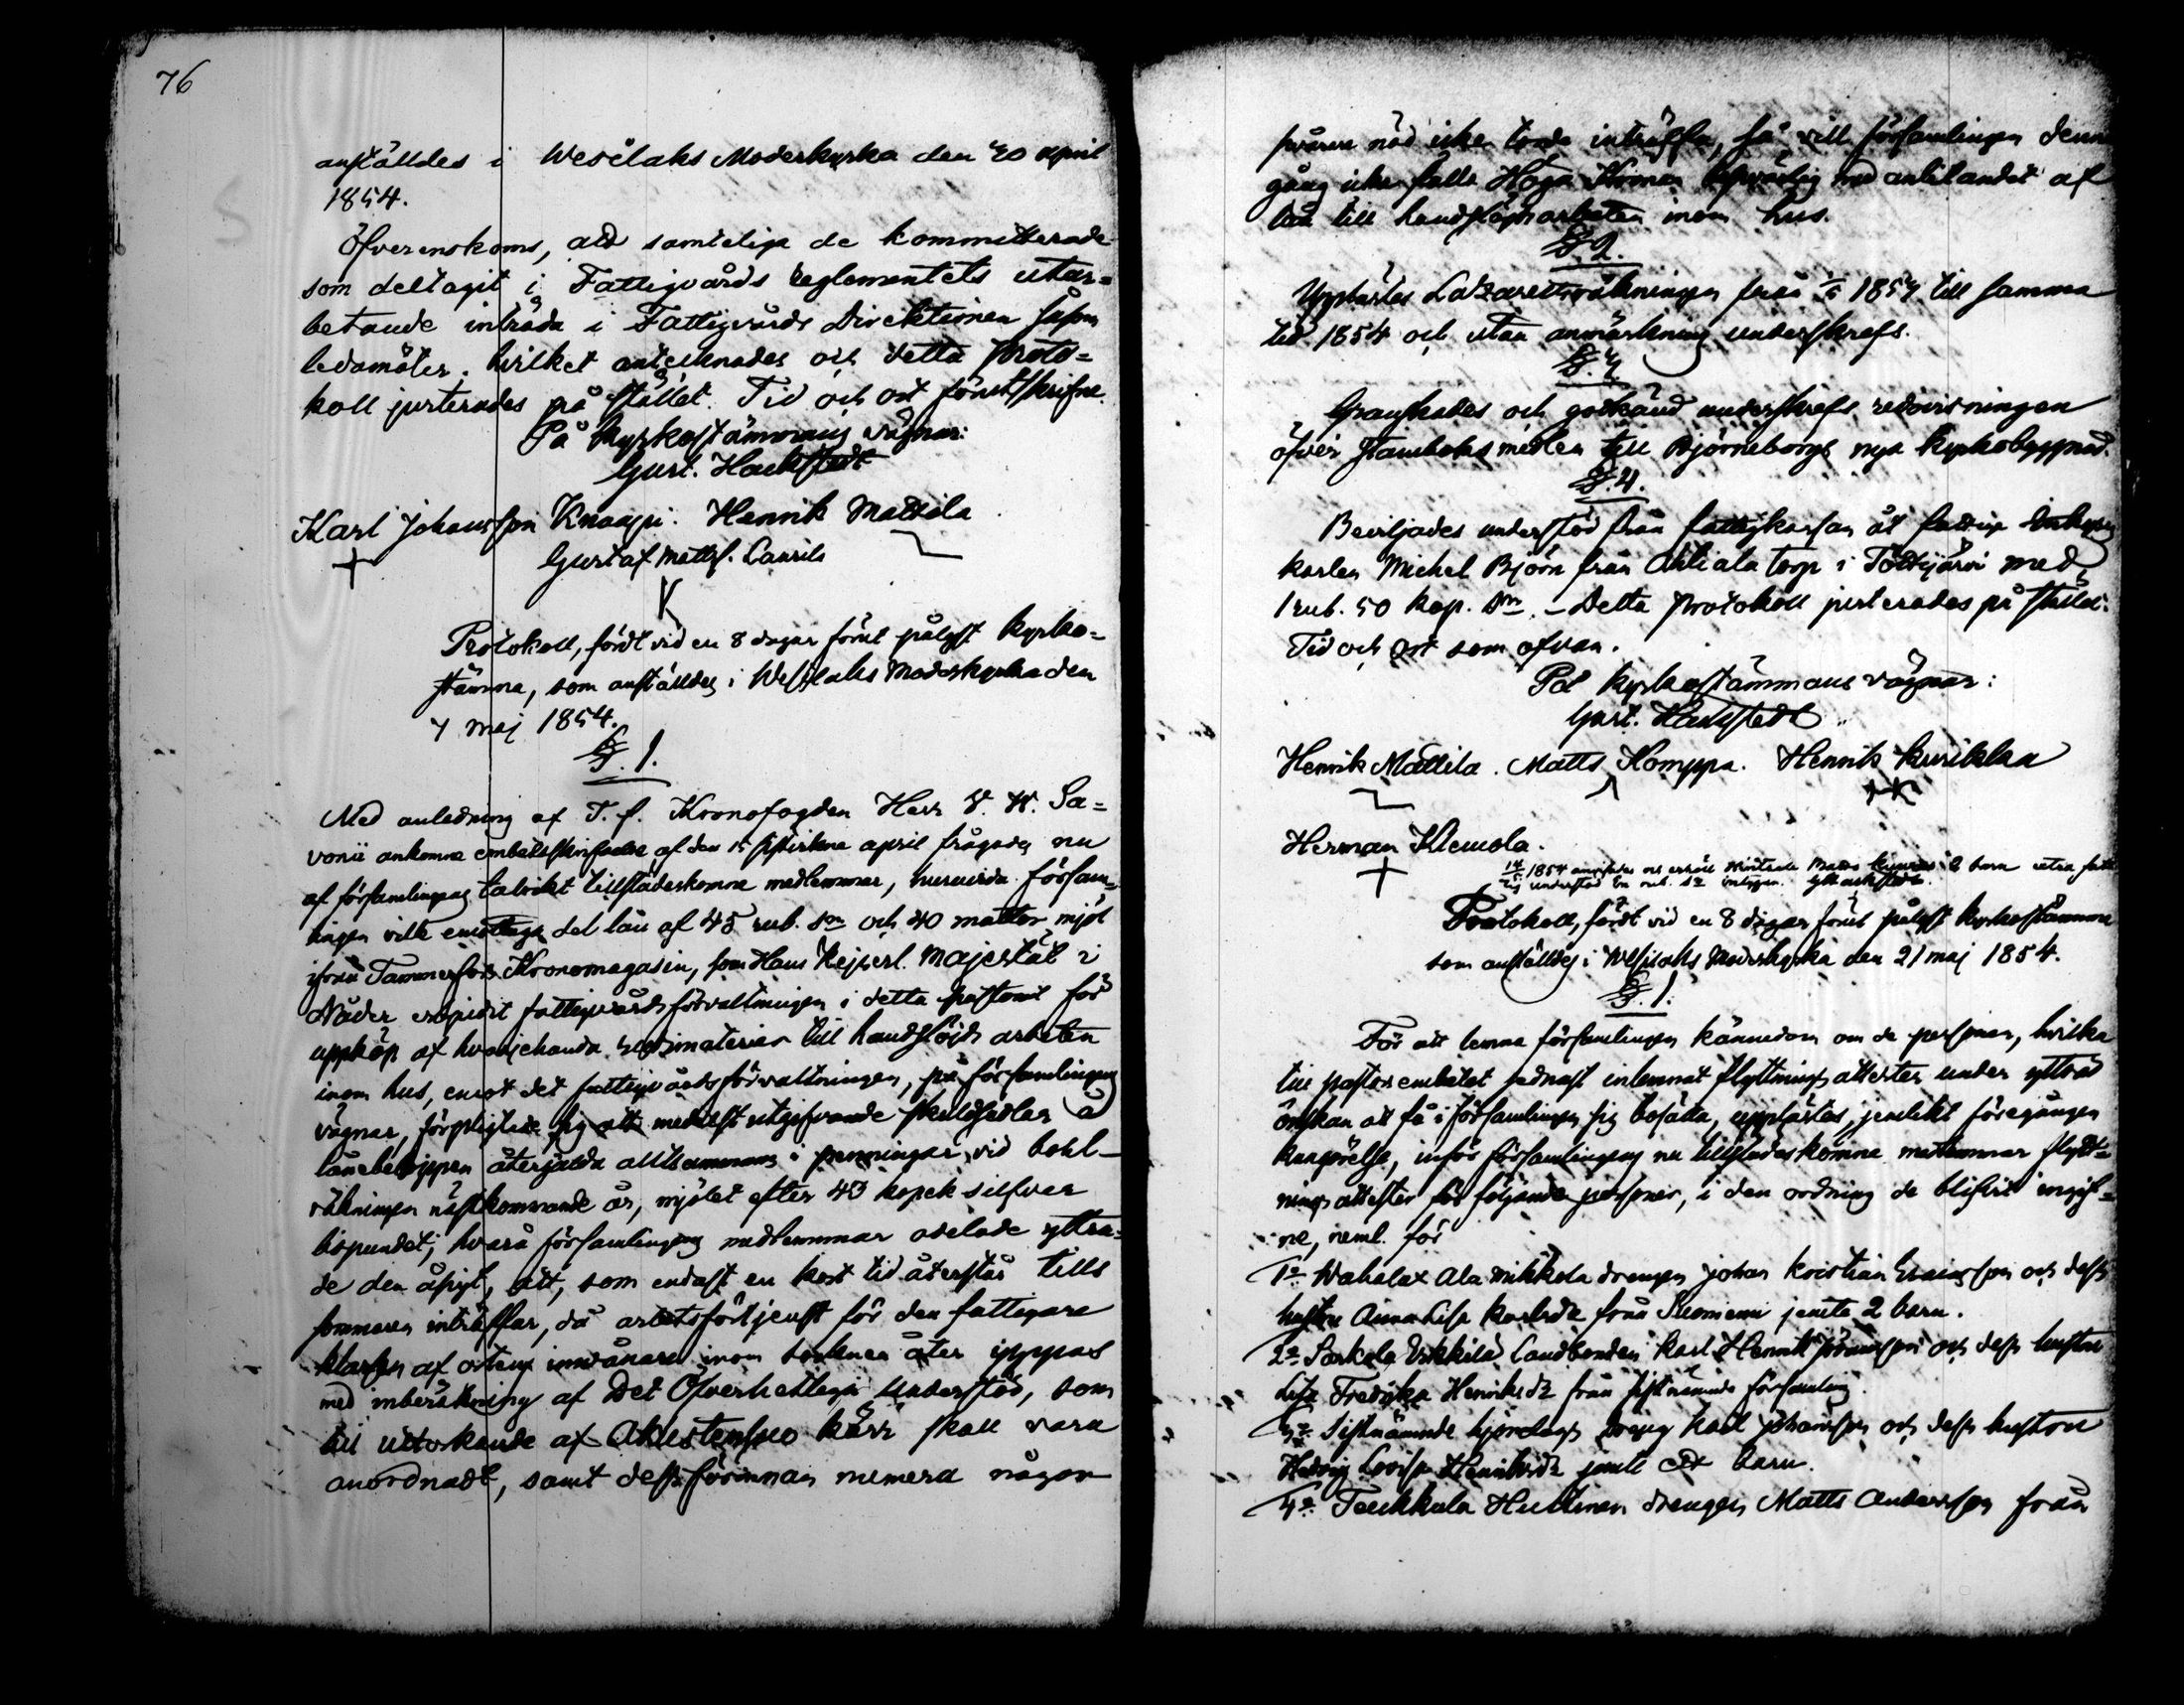 76
anställdes i Wesilaks Moderkyrka den 30 april
1854.
Öfverenskoms, att samtelige de kommitterade
som deltagit i Fattigvårds reglementets utar=
betande inträda i Fattigvårds Direktionen såsom
ledamöter. hvilket antecknades och detta proto=
koll justerades på stället. Tid och ort förutskrifne.
På kyrkostämmans vägnar:
Gust. Hackstedt
Karl Johansson Knaapi. Henrik Mattila
Gustaf Mattss. Laurila
Protokoll, fördt vid en 8 dagar förut pålyst kyrko=
stämma, som anställdes i Wesilaks Moderkyrka den
7 maj 1854.
§. 1.
Med anledning af T. f. Kronofogden Herr V. W. Sa=
vonii ankomne embetsskrifvelse af den 15 sistvikne april frågades nu
af församlingens talrikt tillstädeskomne medlemmar, huruvida försam=
lingen ville emottaga det lån af 45 rub. Sm och 40 mattor mjöl
ifrån Tammerfors Kronomagasin, som Hans Kejserl. Majestät i
Nåder fattigvårdsförvaltningen i detta pastorat för
uppköp af hvarjehanda till handslöjds arbeten
inom hus, emot det fattigvårdsförvaltningen, på församlingens
vägnar, förpligtade sig att medelst utgifvande skuldsedlar å
lånebeloppen återgälda alltsammans i penningar vid bohl-
räkningen nästkommande år, mjölet efter 40 kopek silfver
lispundet; hvarå församlingens medlemmar odelade yttra=
de den åsigt, att, som endast en kort tid återstår tills
sommaren inträffar, då arbetsförtjenst för den fattigare
klassen af ortens innvånare inom socknen åter yppas
med inberäkning af Det Öfverhetliga Understöd, som
till uttorkande af Ahtistensuo kärr skall vara
anordnadt, samt dessförinnan numera någon
svårare nöd icke torde inträffa, så vill församlingen denna
gång icke falla Höga Kronan besvärlig med anlitandet af
lån till handslöjdsarbeten inom hus.
§. 2.
Upplästes Lazarettsräkningen från 1/5 1853 till samma
tid 1854 och utan anmärkning underskrefs.
§. 3.
Granskades och godkänd underskrefs redovisningen
öfver Stamboksmedlen till Björneborgs nya kyrkobyggnad.
§. 4.
Beviljades understöd från fattigkassan åt fattige
karlen Michel Björn från Ahtiala torp i Tottijärvi med
1 rub. 50 kop. Sm. - Detta protokoll justerades på stället.
Tid och ort som ofvan.
På kyrkostämmans vägnar:
Gust. Hackstedt
Henrik Mattila. Matts Komppa. Henrik Kurikka
Herman Klemola.
1854 Matts barn
understöd En rub. Sm
Protokoll, fördt vid en 8 dagar förut pålyst kyrkostämma
som anställdes i Wesilaks Moderkyrka den 21 maj 1854.
§. 1.
För att lemna församlingen kännedom om de personer, hvilka
till pastorsembetet sednast inlemnat flyttningsattester under yttrad
önskan att få i församlingen sig bosätta, upplästes, jemlikt föregången
kungörelse, inför församlingens nu tillstädeskomne medlemmar flytt=
ningsattester för följande personer, i den ordning de blifvit ingif=
ne, neml. för
1o Wahalax Ala Mikkola drengen Johan Kristian och dess
hustru Anna Lisa Karlsdr från Suoniemi jemte 2 barn.
2o Sarkola Erkkilä Landbonden Karl Henrik och dess hustru
Lisa Fredrika Henriksdr från sistnämnde församling.
3o Sistnämnde dreng Karl Johansson och dess hustru
Hedvig Lovisa Henriksdr jemte ett barn.
4o Teukkula Huttinen drengen Matts Andersson från